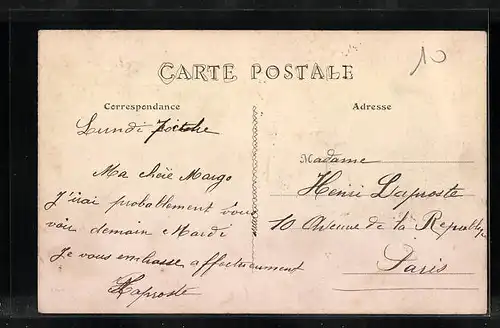 10
CARTE POSTALE
Correspondance
Adresse
Lundi
Ma chère Margo
J'irai probablement vous
voir demain Mardi
Je vous embrasse affectueusement
Laproste
Madame
Henri Laproste
10 Avenue de la Republique
Paris